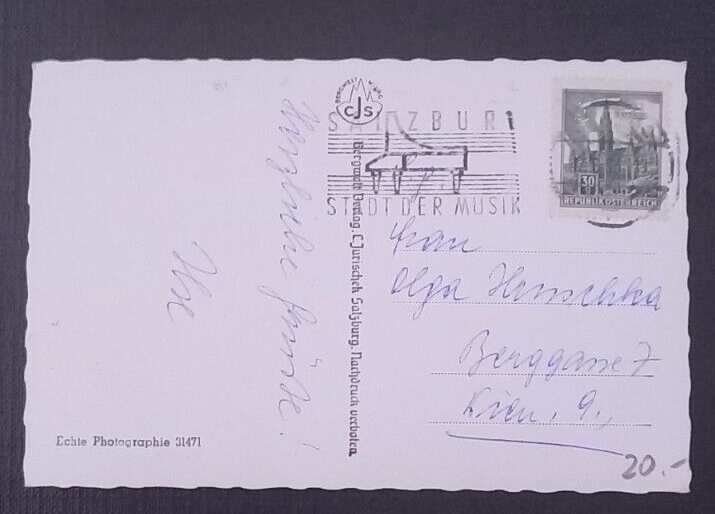 BERGWELT VERLAG
CJS
SALZBURG
STADT DER MUSIK
30
REPUBLIK ÖSTERREICH
Bergwelt Verlag, C. Jurischek Salzburg. Nachdruck verboten
Herzliche Grüße!
Frau
Olga
Berggasse 7
Wien, 9.,
Echte Photographie 31471
20.-